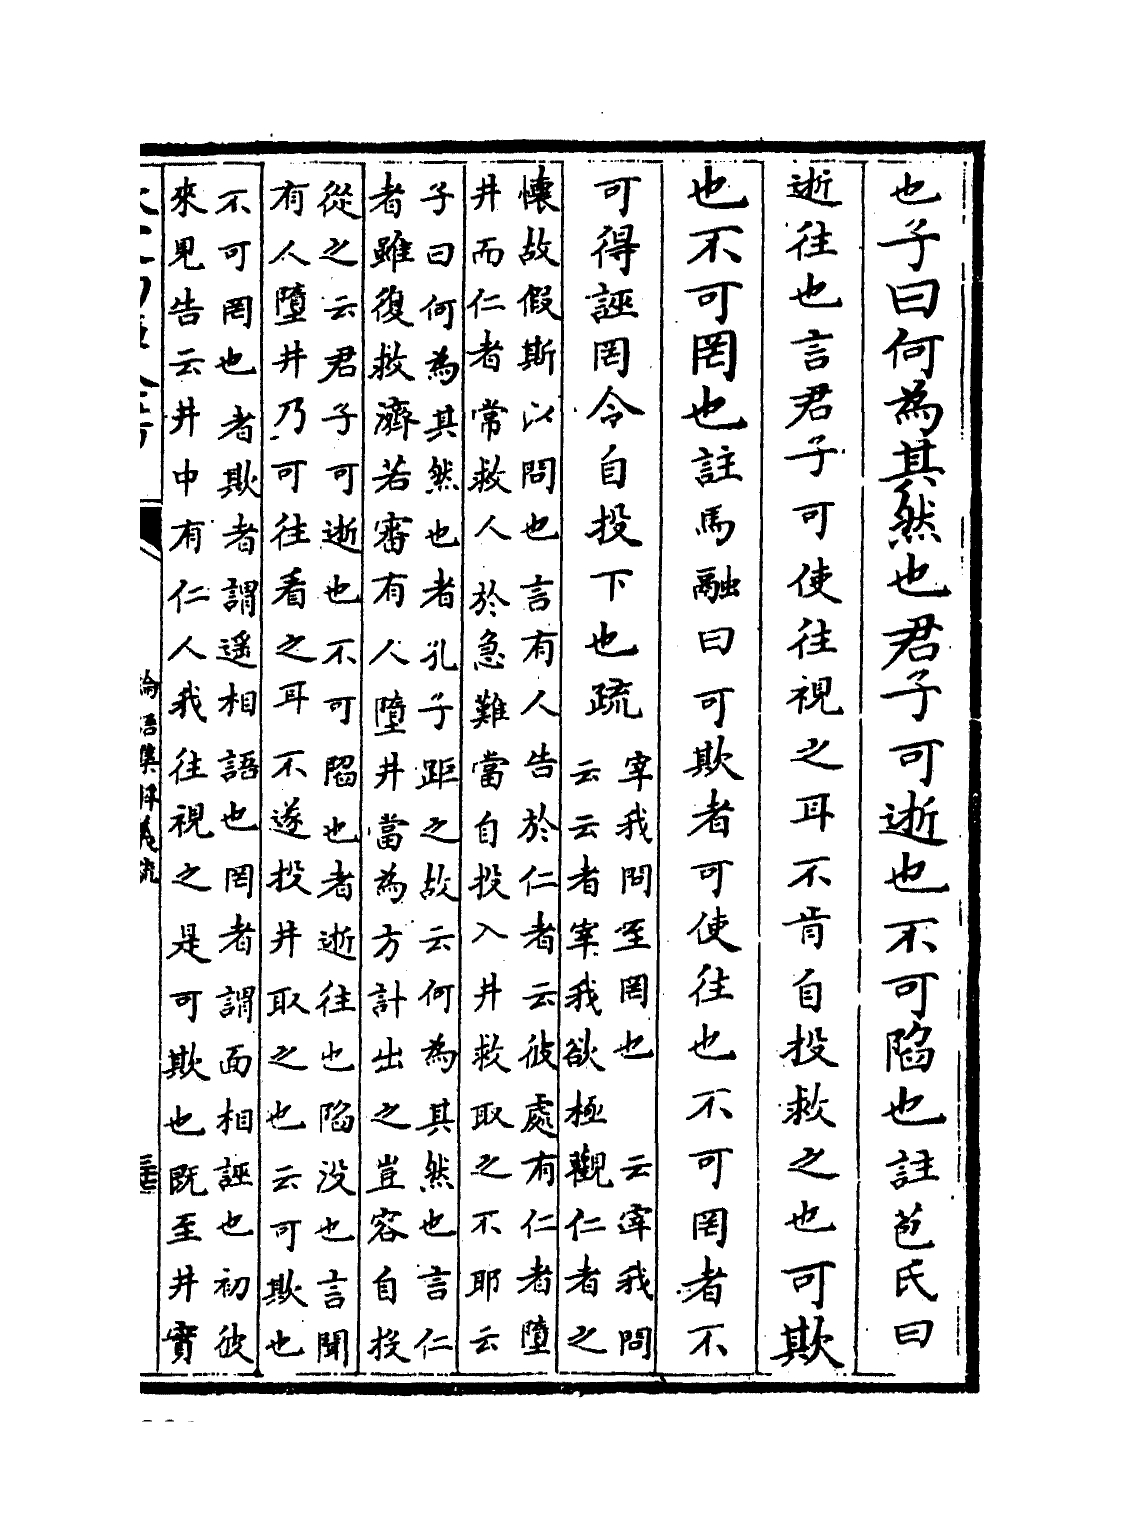 也子曰何為其然也君子可逝也不可陷也註苞氏曰
逝往也言君子可使往視之耳不肯自投救之也可欺
也不可罔也註馬融曰可欺者可使往也不可罔者不
可得誣罔令自投下也疏
宰我問至罔也 云宰我問
云云者宰我欲極觀仁者之
懷故假斯以問也言有人告於仁者云彼處有仁者墮
井而仁者常救人於急難當自投入井救取之不耶云
子曰何為其然也者孔子距之故云何為其然也言仁
者雖復救濟若審有人墮井當為方計出之豈容自投
從之云君子可逝也不可陷也者逝往也陷没也言聞
有人墮井乃可往看之耳不遂投井取之也云可欺也
不可罔也者欺者謂遥相語也罔者謂面相誣也初彼
來見告云井中有仁人我往視之是可欺也既至井實
論語集解義疏